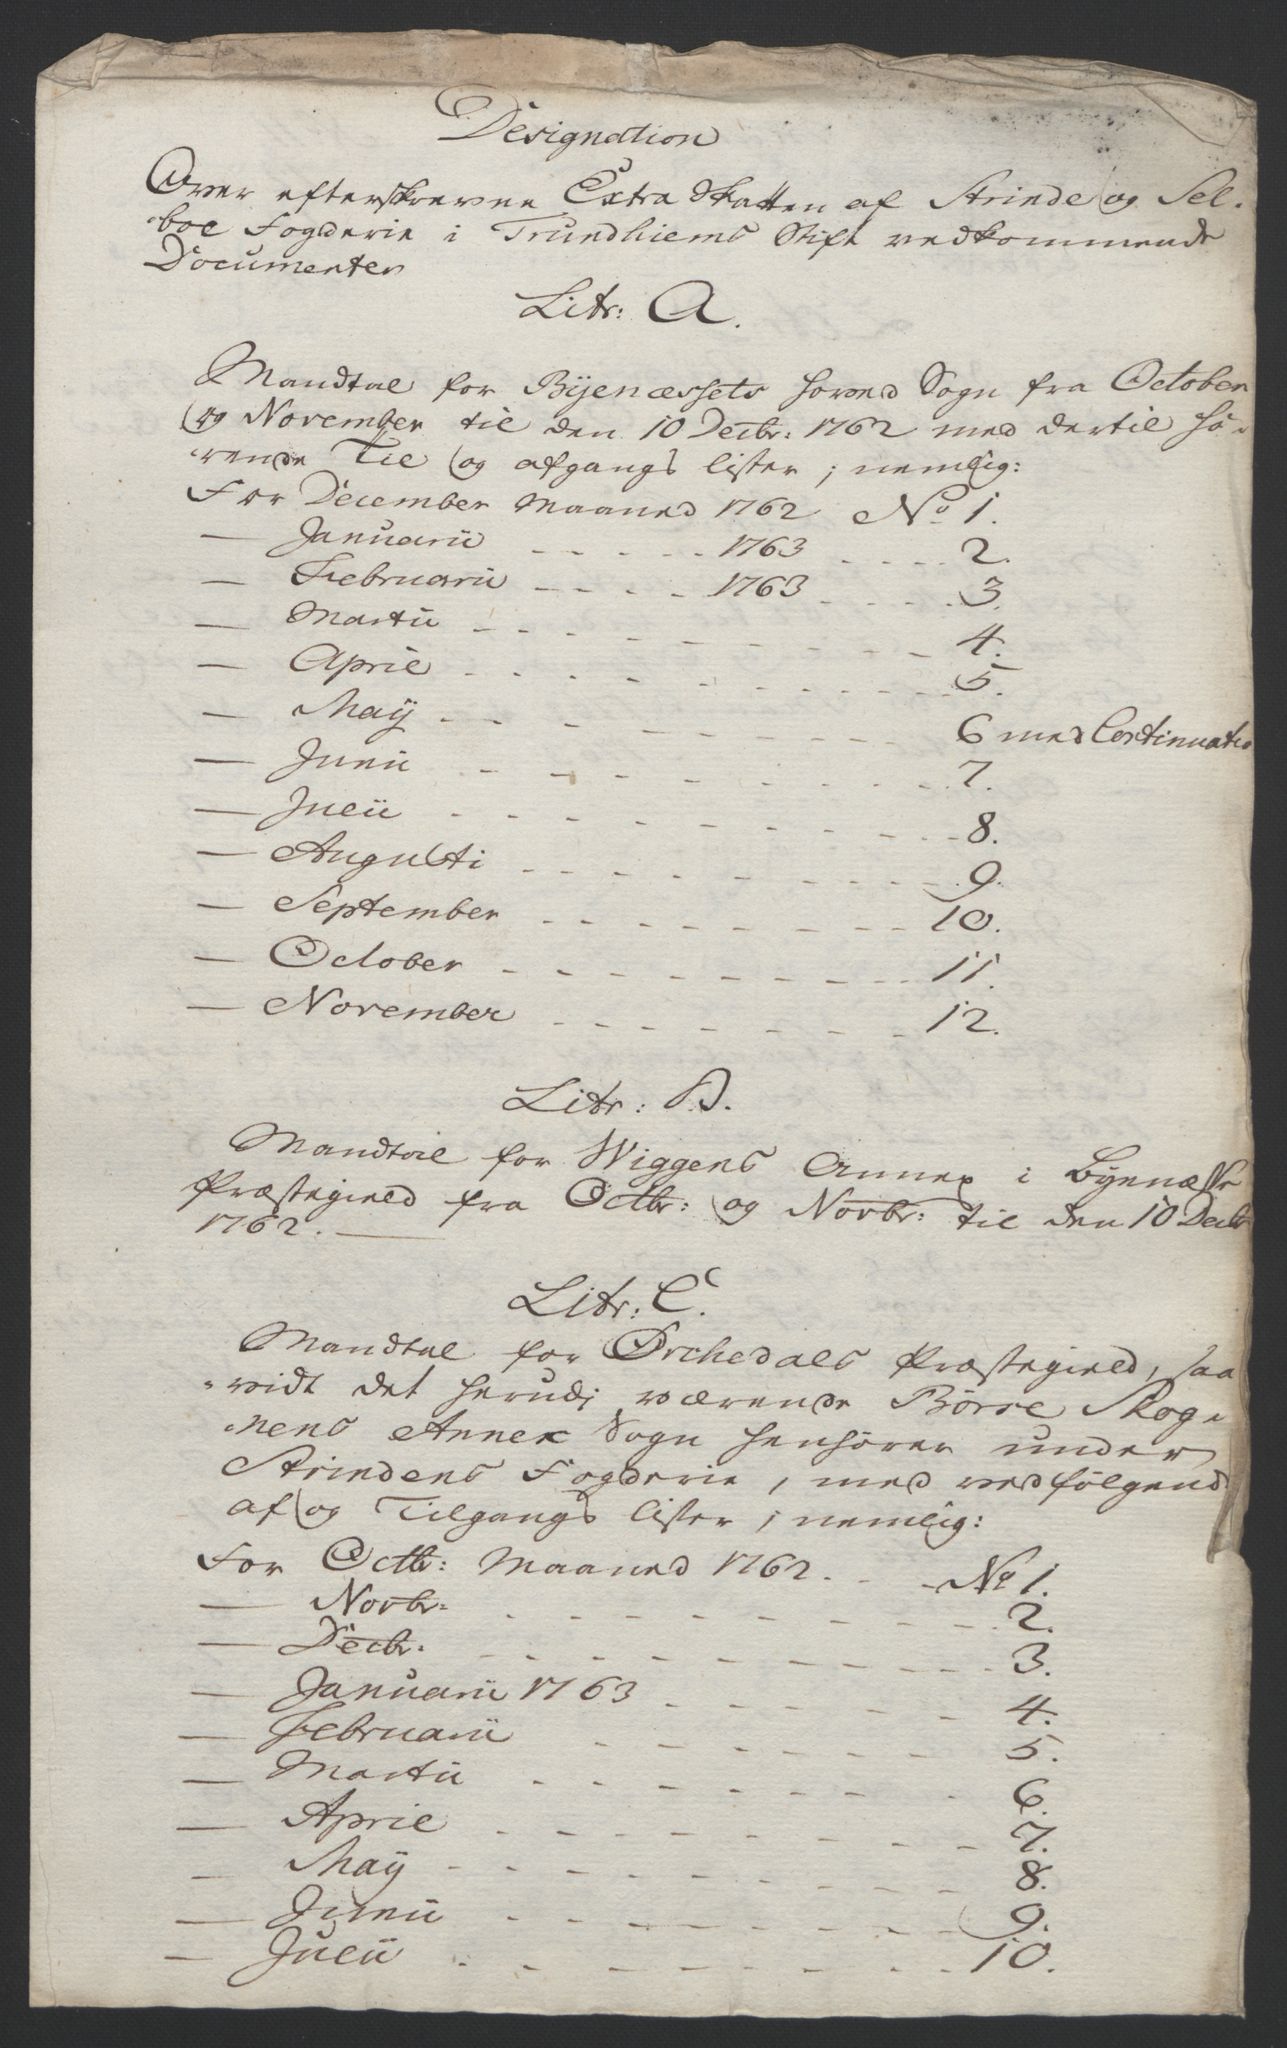 Designation
Over efterskrevne Extra Skatten af Strinde og Sel-
boe Fogderie i Trundhiems Stift vedkommende
Documenter
Litr: A.
Mandtal for Bÿenæssets Hoved Sogn fra October
og November til den 10 Decbr: 1762 med dertil hö-
rende Til og afgangs lister, nemlig:
For December Maaned 1762 No 1.
— Januarii - - - - - 1763 - - - - - 2.
— Februarii - - - - 1763 - - - - - 3.
— Martii - - - - - - - - - 4.
— April - - - - - - - - - 5.
— Maÿ - - - - - - - - - 6 med Continuatio
— Junii - - - - - - - - - 7.
— Julii - - - - - - - - - 8.
— Augusti - - - - - - - - - 9.
— September - - - - - - - - 10.
— October - - - - - - - - - 11.
— November - - - - - - - - 12.
Litr: B.
Mandtal for Wiggens Annex i Byenæsse
Præstegield fra Octbr: og Novbr: til den 10 Decbr
1762. —
Litr: C.
Mandtal for Örchedals Præstegield, saa
-vidt det herudj værende Börse Skog-
nens Annex Sogn henhörer under
Strindens Fogderie, med vedfölgend
af og Tilgangs lister, nemlig:
For Octbr: Maaned 1762. - - No 1.
— Novbr: - - - - - - - - - 2.
— Decbr: - - - - - - - - - 3.
— Januarii 1763 - - - - - - 4.
— Februarii - - - - - - - - 5.
— Martii - - - - - - - - - 6.
— April - - - - - - - - - 7.
— Maÿ - - - - - - - - - 8.
— Junii - - - - - - - - - 9.
— Julii - - - - - - - - - 10.